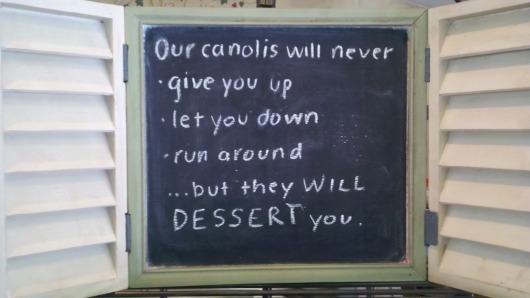 Our canolis will never
· give you up
· let you down
· run around
...but they WILL
DESSERT you.